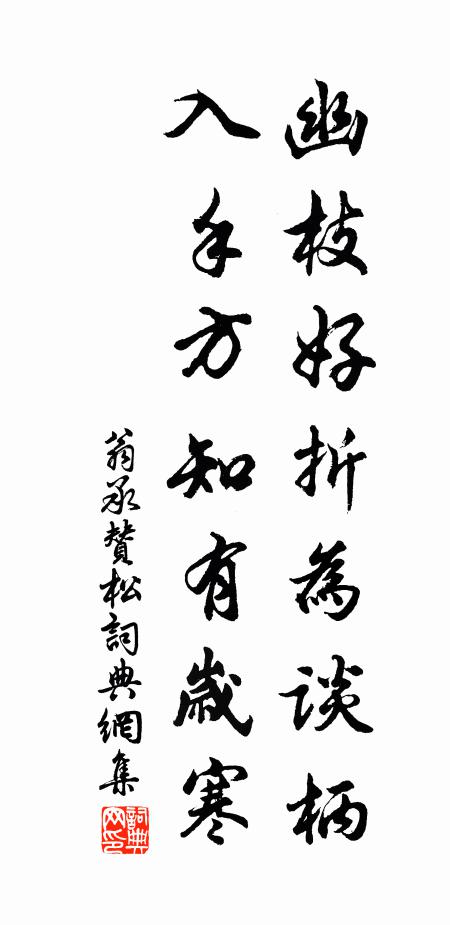 幽枝好折為談柄
入手方知有歲寒
翁承贊松詞典網集
詞典網印